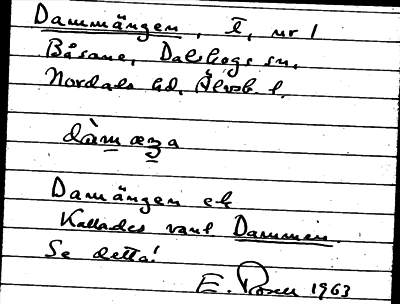 Dammängen, t, nr 1
Båsane, Dalskogs sn,
Nordals hd. Älvsb. l.
dàmæŋa
Damängen el.
Kallades vanl Dammen.
Se detta!
E. Rosell 1963